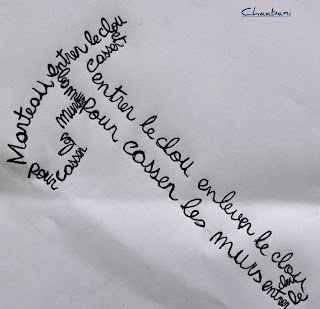 Chaabani
Marteau entrer le clou
casser
les murs
pour casser les murs
entrer le clou enlever le clou
pour casser les murs entrer le
clou